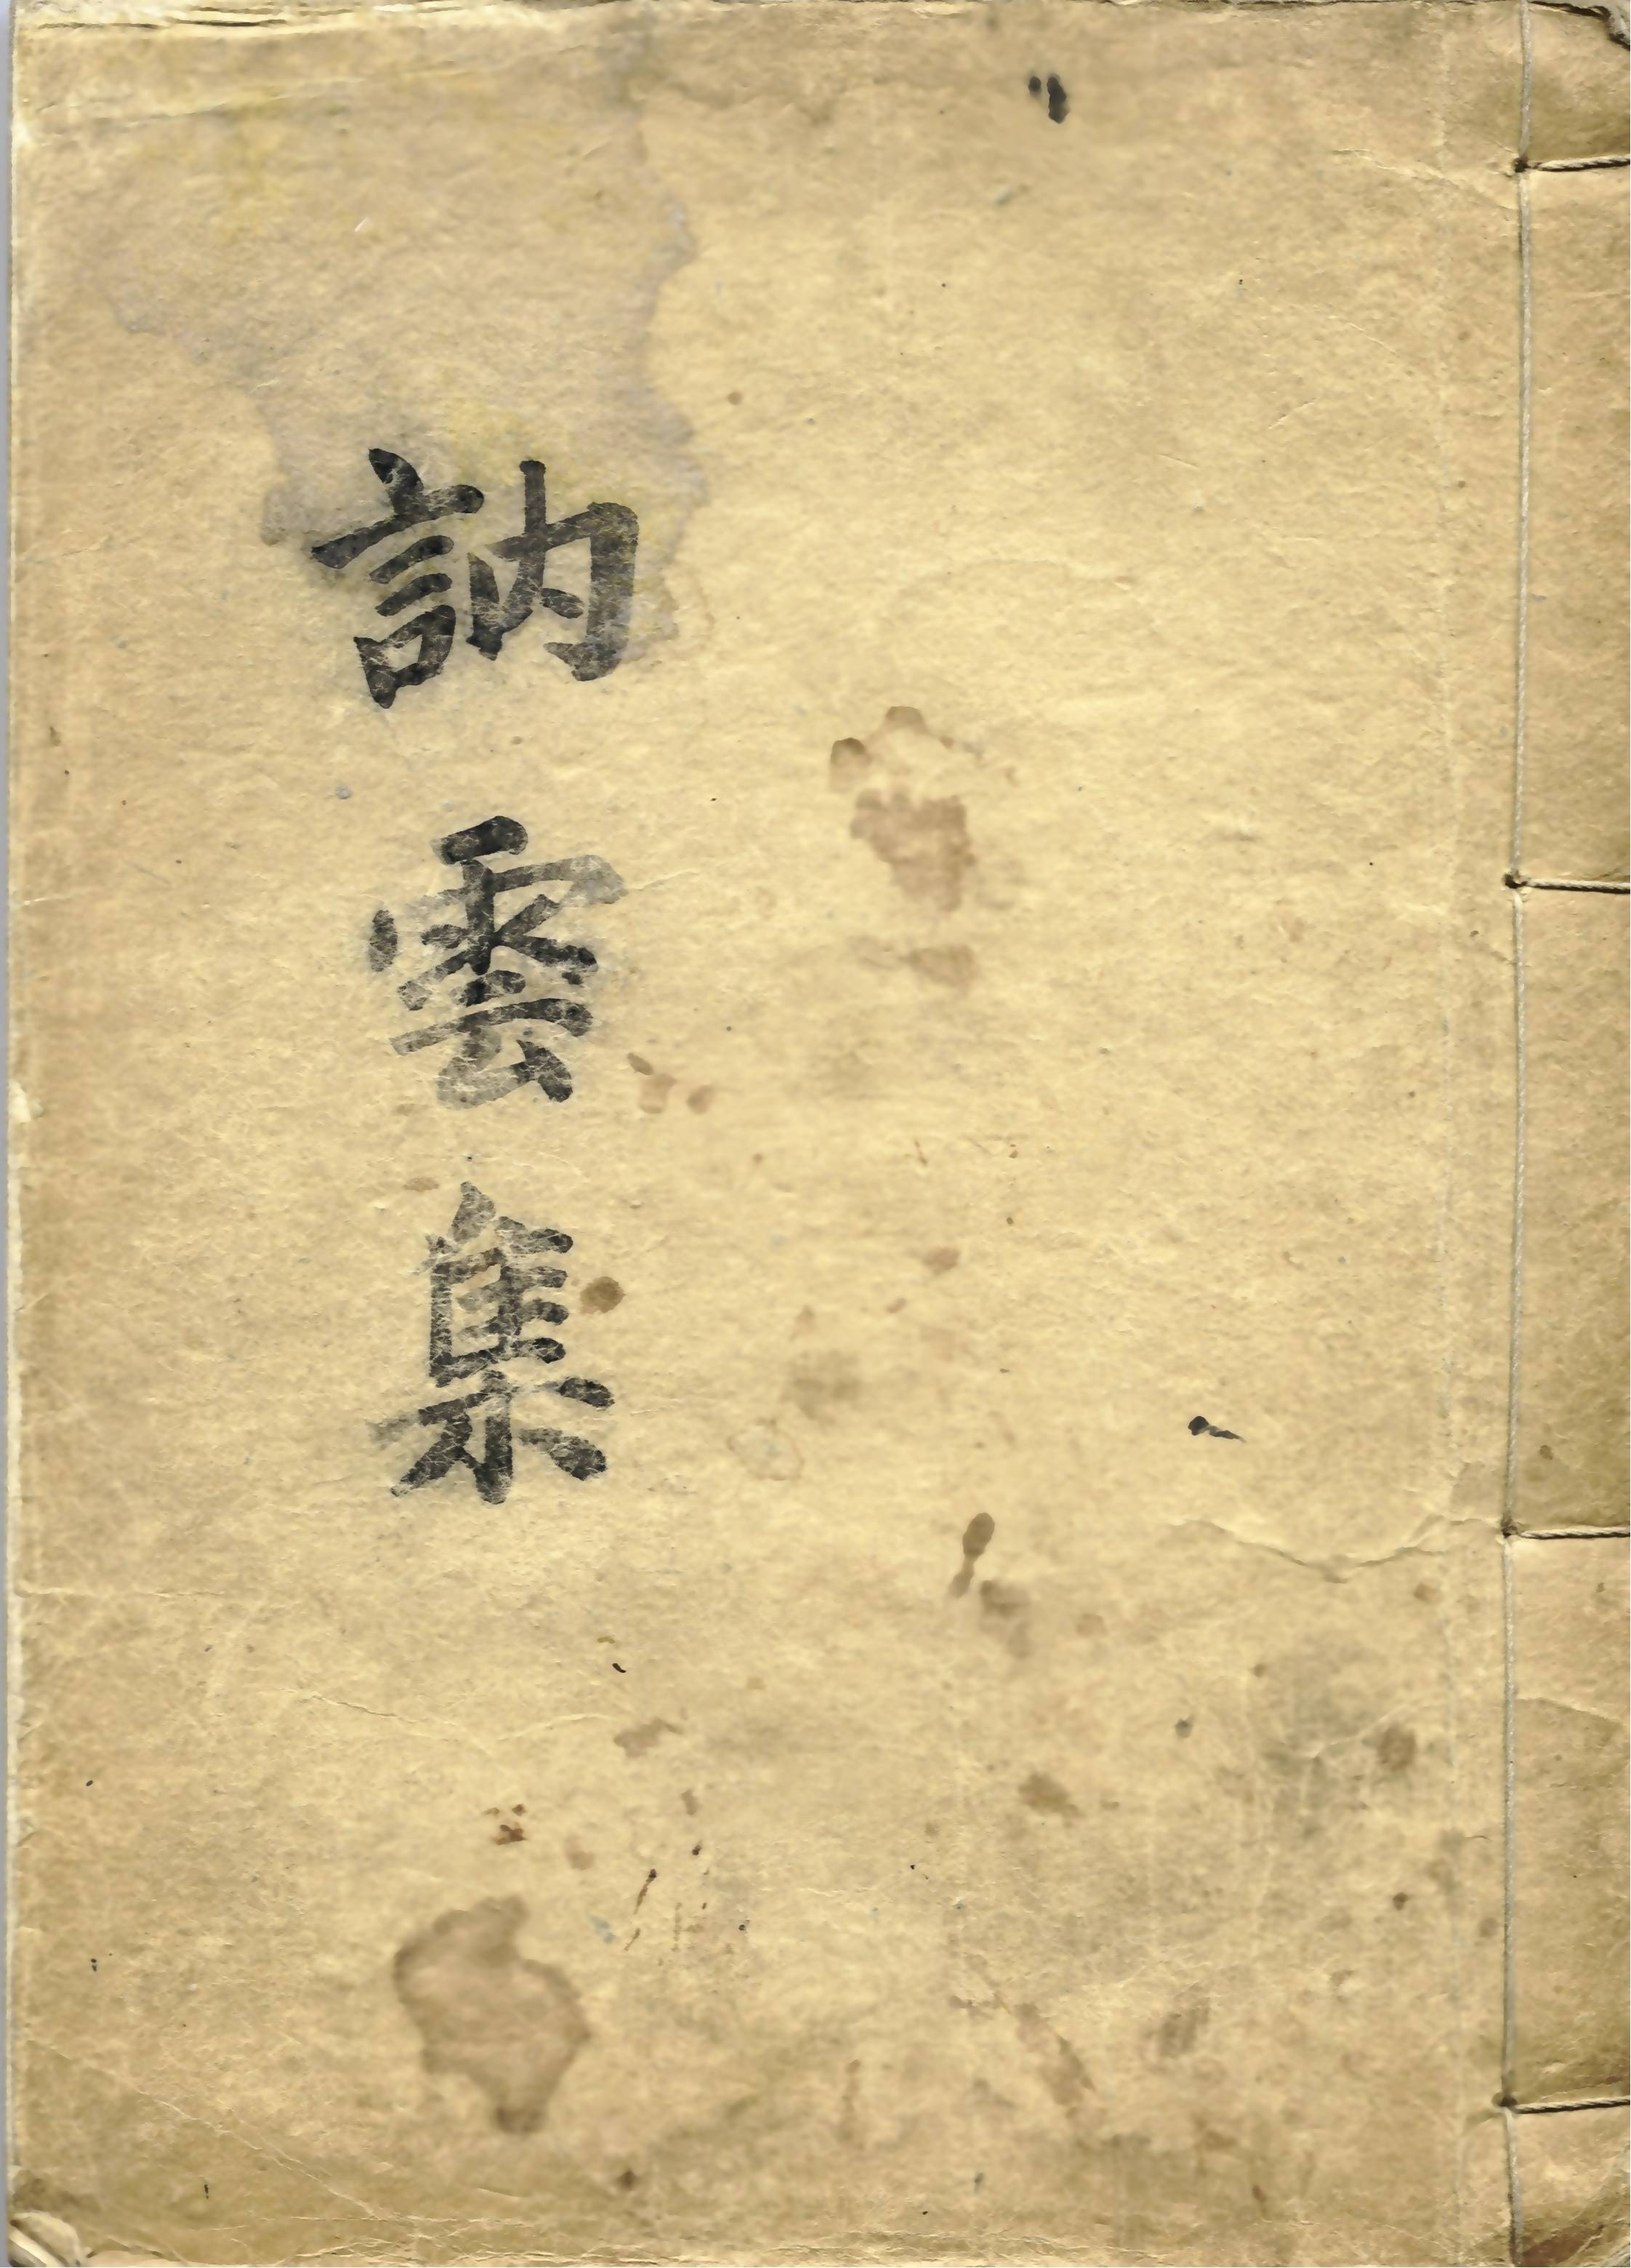 訥雲集